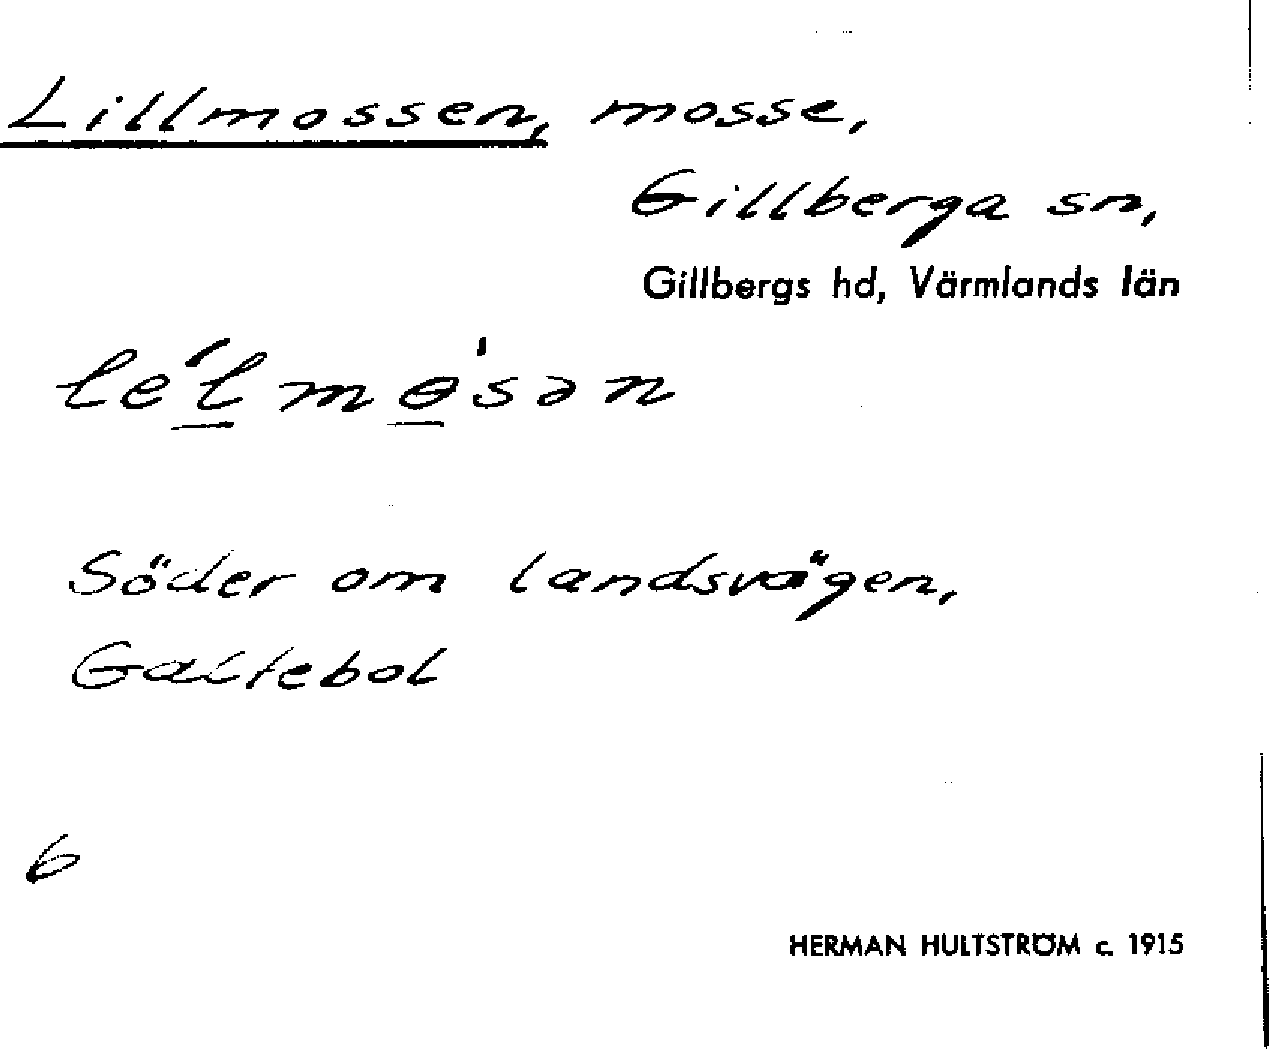 Lillmossen, mosse,
Gillberga sn,
Gillbergs hd, Värmlands län
le´l̲mɵ̲'sən
Söder om landsvägen,
Galtebol
6
HERMAN HULTSTRÖM c. 1915